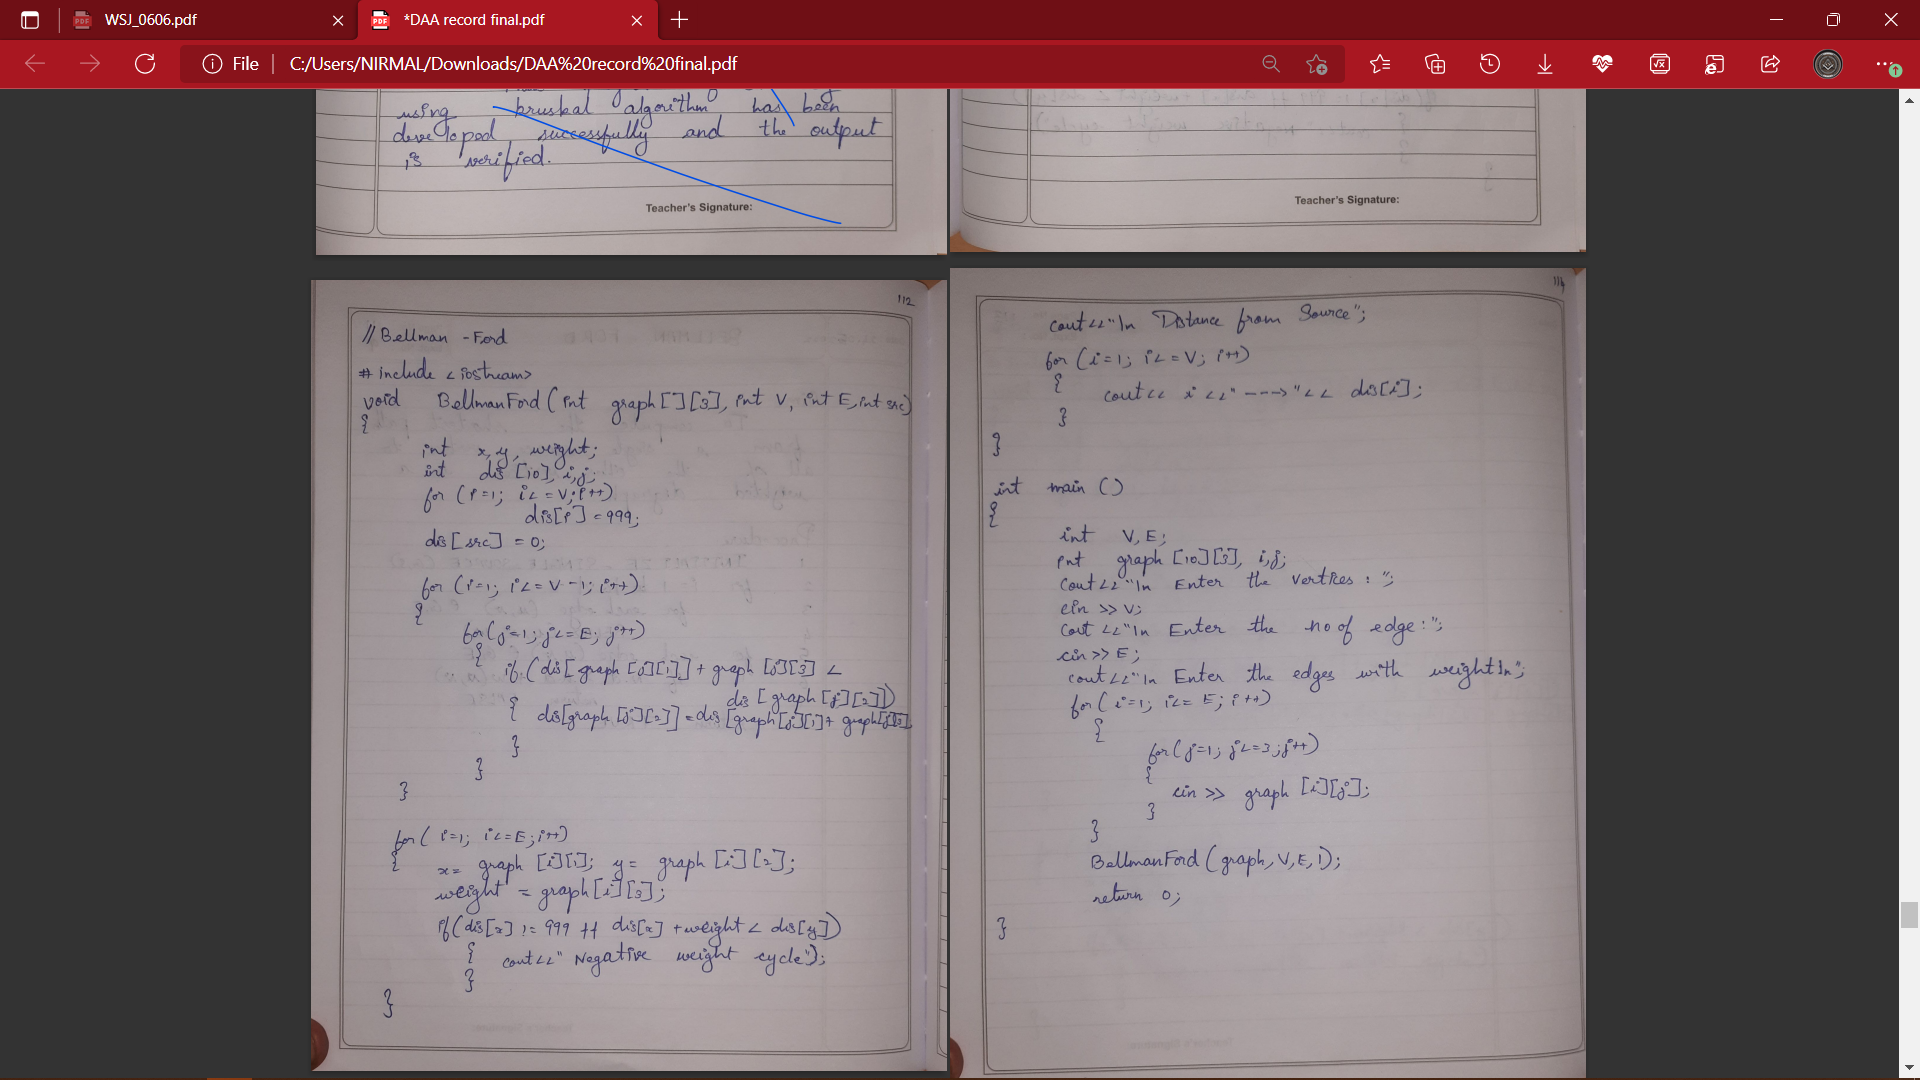 WSJ_0606.pdf
*DAA record final.pdf
File
C:/Users/NIRMAL/Downloads/DAA%20record%20final.pdf
using kruskal algorithm has been
developed successfully and the output
is verified.
Teacher's Signature:
Teacher's Signature:
112
// Bellman - Ford
# include <iostream>
void BellmanFord (int graph[][3], int V, int E, int src)
{
int x, y, weight;
int dis [10], i, j;
for (i=1; i<=V; i++)
dis[i] = 999;
dis[src] = 0;
for (i=1; i<=V-1; i++)
{
for (j=1; j<=E; j++)
{
if (dis[graph[j][1]] + graph[j][3] <
dis [graph[j][2]])
{ dis[graph[j][2]] = dis[graph[j][1]+ graph[j][3]
}
}
}
for ( i=1; i<=E; i++)
{
x= graph [i][1]; y= graph [i][2];
weight = graph[i][3];
if (dis[x] != 999 && dis[x] +weight < dis[y])
{ cout<<" Negative weight cycle");
}
}
114
cout<<"\n Distance from Source";
for (i=1; i<=V; i++)
{ cout<< i <<" --->"<< dis[i];
}
}
int main ()
{
int V, E;
int graph [10][3], i, j;
cout<<"\n Enter the vertices : ";
cin >> V;
cout <<"\n Enter the no of edge: ";
cin >> E;
cout<<"\n Enter the edges with weight\n";
for (i=1; i<= E; i++)
{
for (j=1; j<=3; j++)
{
cin >> graph [i][j];
}
}
BellmanFord (graph, V, E, 1);
return 0;
}